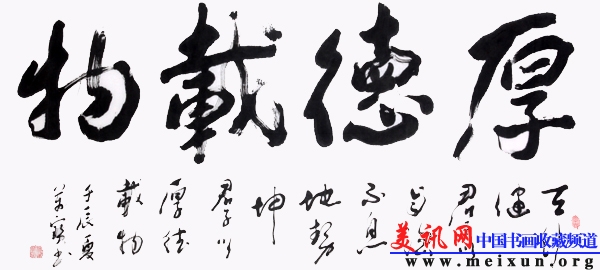 厚德載物
天行
健
君子以
自強
不息
地勢
坤
君子以
厚德
載物
壬辰夏
美讯网 中国书画收藏频道
www.meixun.net